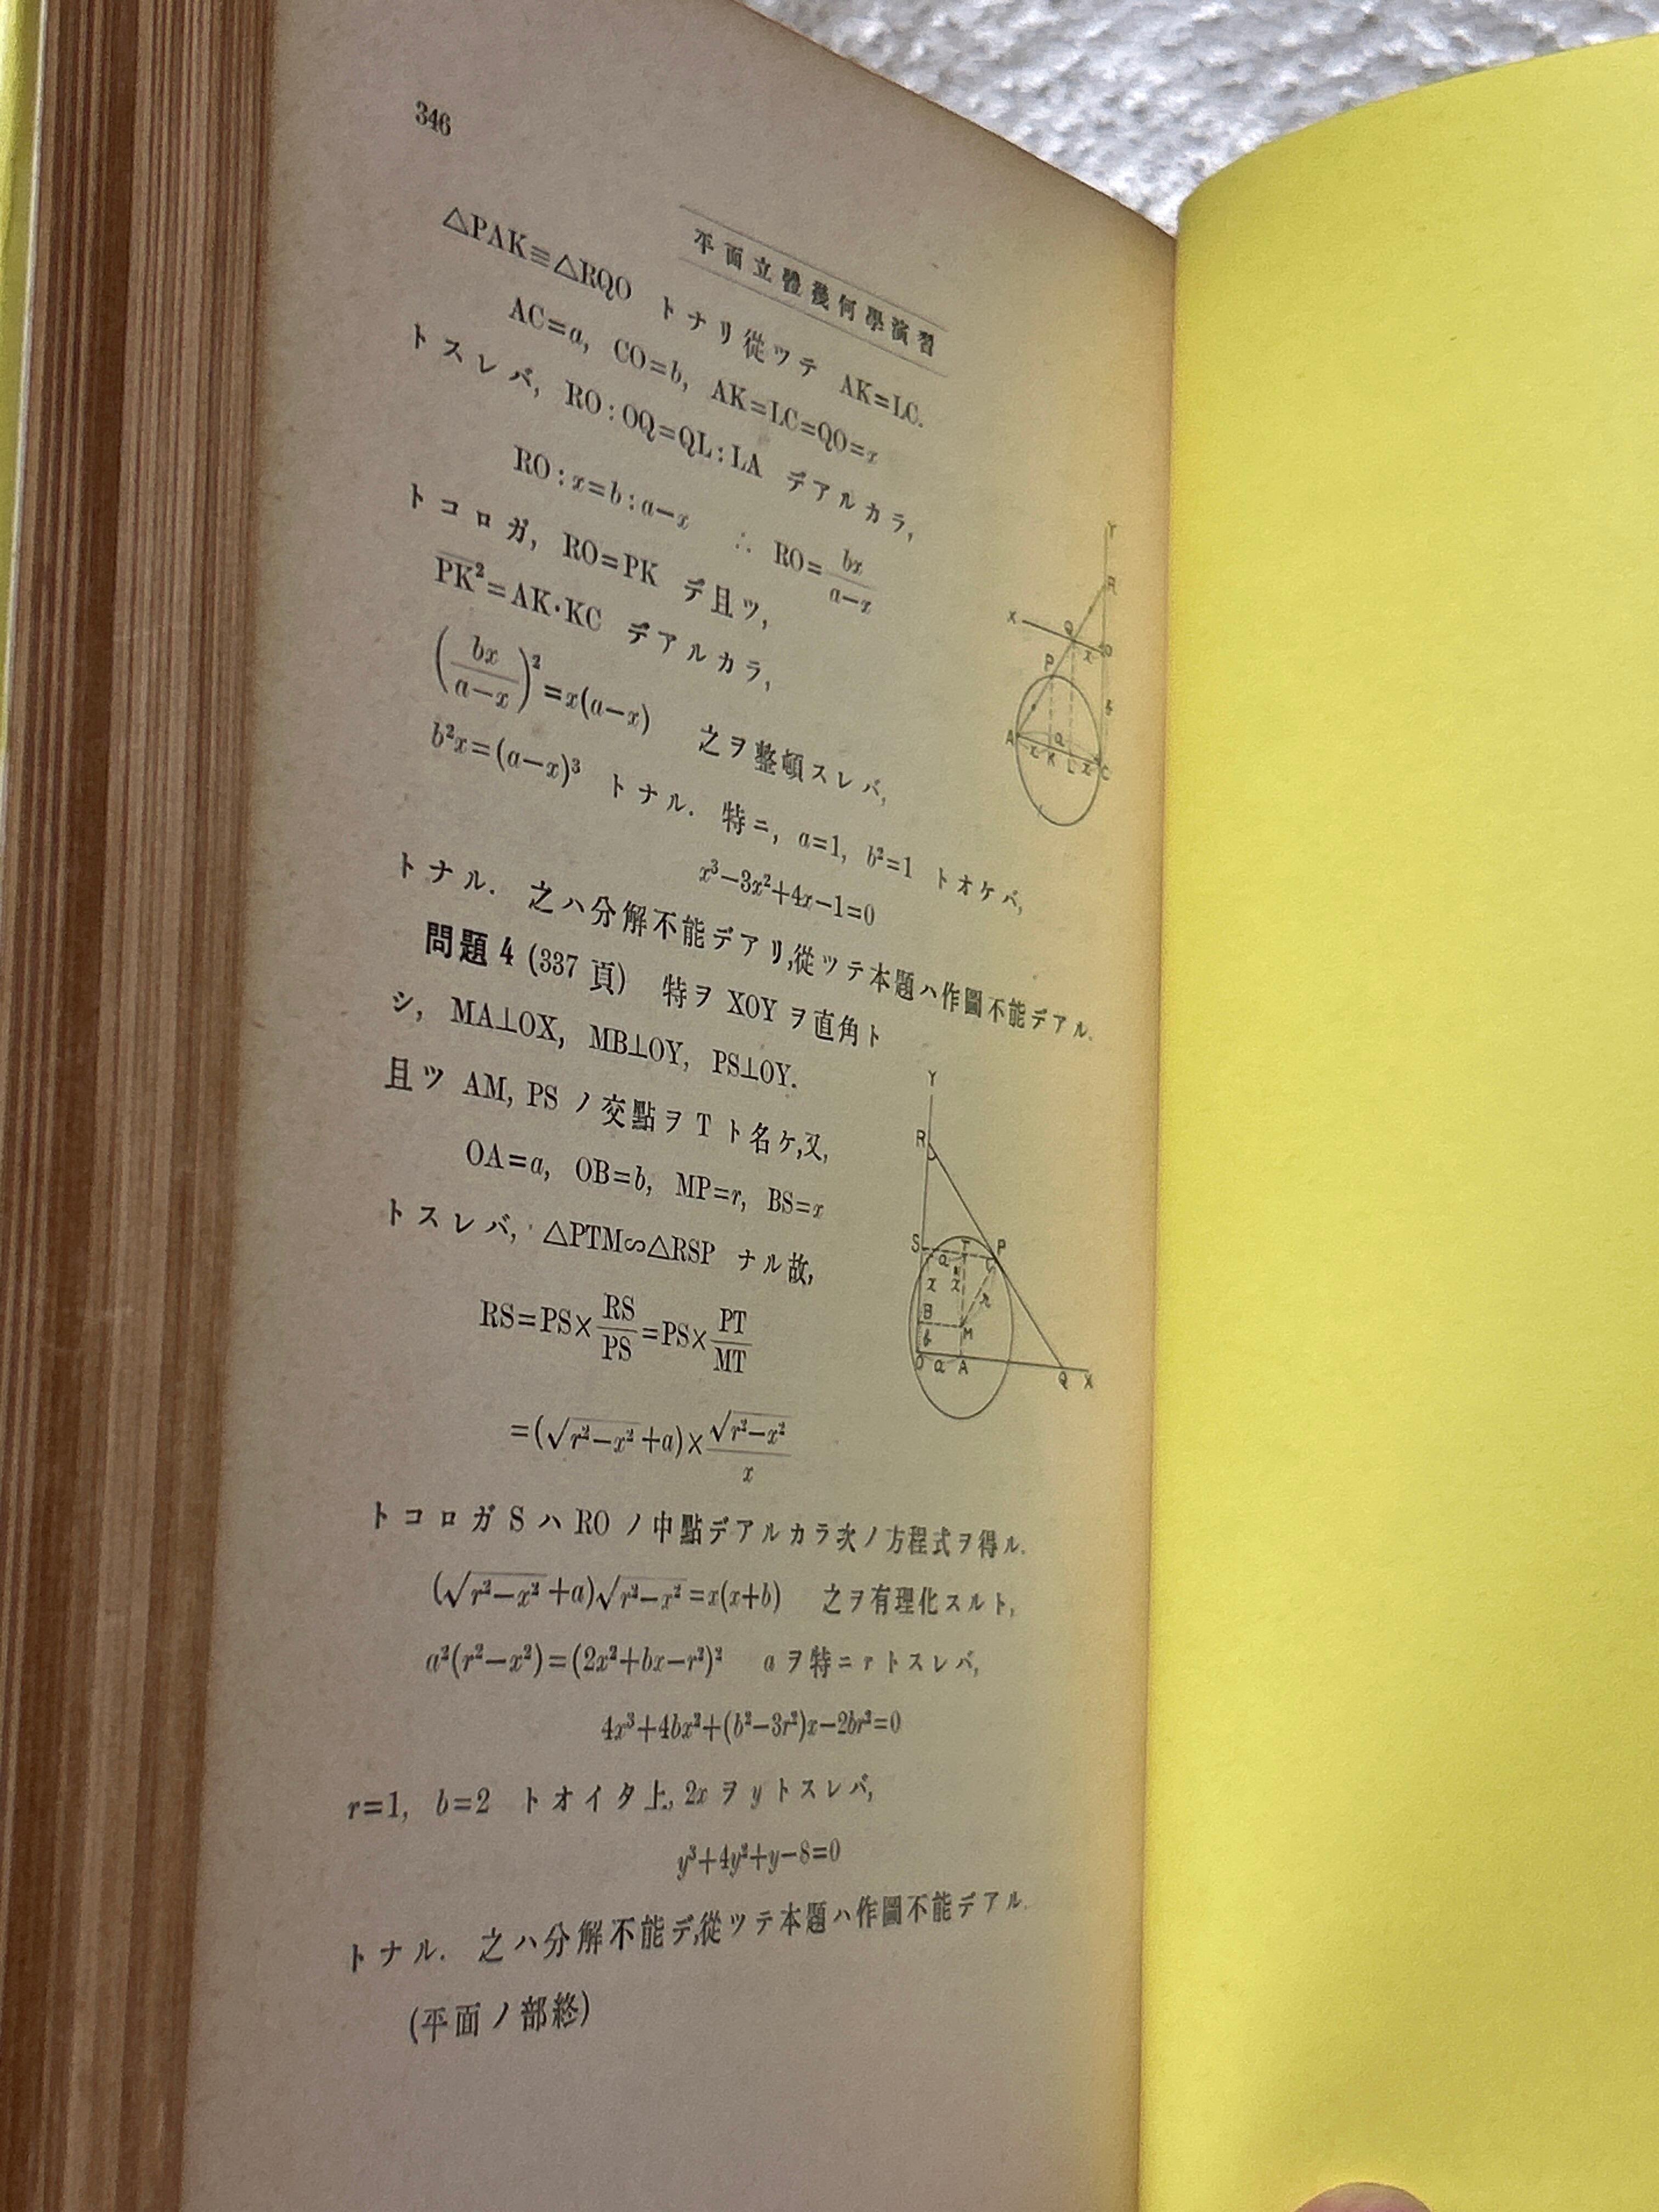 346
平面立體幾何學演習
△PAK≡△RQO トナリ從ツテ AK=LC.
AC=a, CO=b, AK=LC=QO=x
トスレバ, RO:OQ=QL:LA デアルカラ,
RO:x=b:a−x ∴ RO=bx/(a−x)
トコロガ, RO=PK デ且ツ,
PK²=AK·KC デアルカラ,
(bx/(a−x))²=x(a−x) 之ヲ整頓スレバ,
b²x=(a−x)³ トナル. 特ニ, a=1, b²=1 トオケバ,
x³−3x²+4x−1=0
トナル. 之ハ分解不能デアリ,從ツテ本題ハ作圖不能デアル.
問題 4 (337 頁) 特ヲ XOY ヲ直角ト
シ, MA⊥OX, MB⊥OY, PS⊥OY.
且ツ AM, PS ノ交點ヲ T ト名ケ,又,
OA=a, OB=b, MP=r, BS=x
トスレバ, △PTM∽△RSP ナル故,
RS=PS×RS/PS=PS×PT/MT
=(√(r²−x²)+a)×√(r²−x²)/x
トコロガ S ハ RO ノ中點デアルカラ次ノ方程式ヲ得ル.
(√(r²−x²)+a)√(r²−x²)=x(x+b) 之ヲ有理化スルト,
a²(r²−x²)=(2x²+bx−r²)² a ヲ特ニ r トスレバ,
4x³+4bx²+(b²−3r²)x−2br²=0
r=1, b=2 トオイタ上, 2x ヲ y トスレバ,
y³+4y²+y−8=0
トナル. 之ハ分解不能デ,從ツテ本題ハ作圖不能デアル.
(平面ノ部終)
Y
R
X
Q
O
x
P
b
A
a
x
K
L
x
C
Y
R
S
T
P
a
x
x
r
B
M
b
O
a
A
Q
X